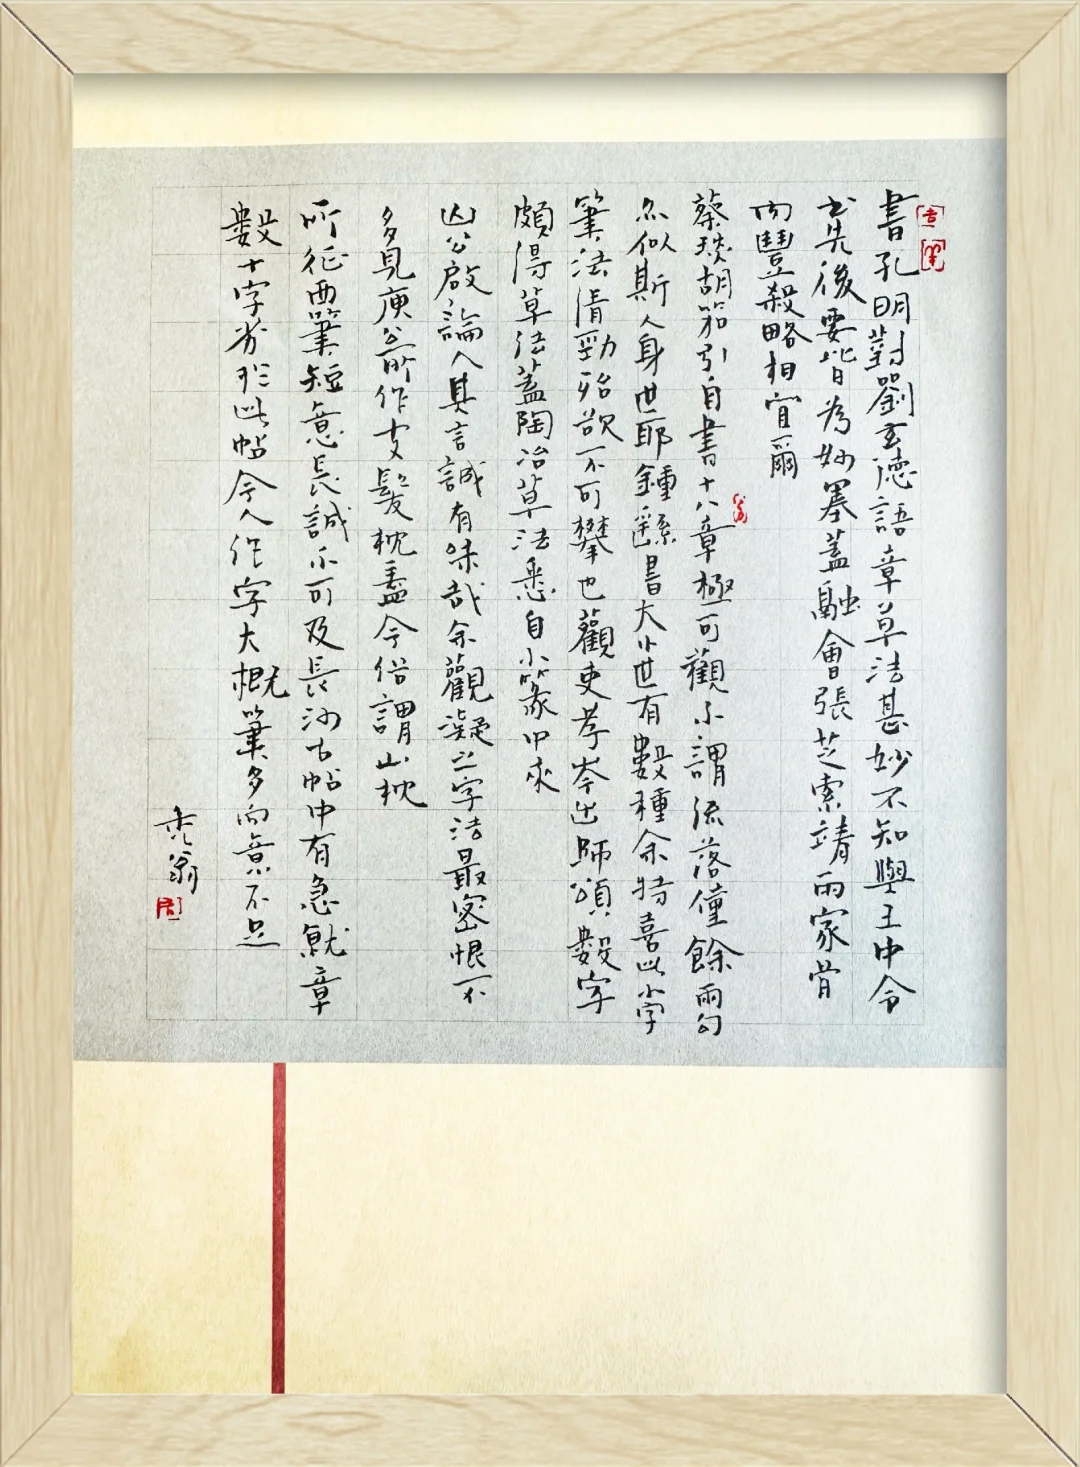 書孔明對劉玄德語章草法甚妙不知與王中令
書先後要皆為妙墨蓋融會張芝索靖兩家骨
肉豐殺略相宜爾
蔡琰胡笳引自書十八章極可觀不謂流落僅餘兩句
亦似斯人身世耶鍾繇書大小世有數種余特喜此小字
筆法清勁殆欲不可攀也觀史孝岑出師頌數字
頗得草法蓋陶冶草法悉自小篆中來
凶公啟論人其言誠有味哉余觀凝之字法最密恨不
多見庾公所作支髮枕盖今俗謂山枕
所征西筆短意長誠不可及長沙古帖中有急就章
數十字劣於此帖今人作字大概筆多而意不足
禿翁